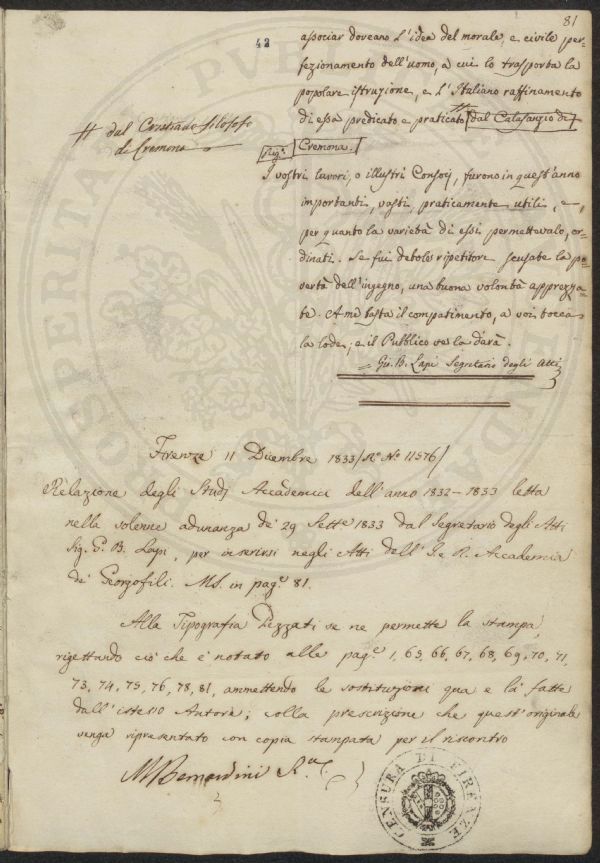 81
42
associar doveano l'idea del morale, e civile per-
fezionamento dell'uomo, a cui lo trasporta la
popolare istruzione, e l'Italiano raffinamento
di essa predicato e praticato # dal Calasanzio di
# dal Cristiano filosofo
di Cremona
Cremona.
I vostri lavori, o illustri Consocj, furono in quest'anno
importanti, vasti, praticamente utili, e,
per quanto la varietà di essi permettevalo, or-
dinati. Se fui debole ripetitore scusate la po-
vertà dell'ingegno, una buona volontà apprezza-
te. A me basta il compatimento, a voi tocca
la lode; e il Pubblico ve la darà.
= Gio. B. Lapi Segretario degli Atti
Firenze 11 Dicembre 1833 / No. 11576 /
Relazione degli Studj Accademici dell'anno 1832-1833 letta
nella solenne adunanza de' 29 Sette 1833 dal Segretario degli Atti
Sig. G. B. Lapi, per inserirsi negli Atti dell'I. e R. Accademia
de' Georgofili. MS. in pag.e 81.
Alla Tipografia Pezzati se ne permette la stampa,
rigettando ciò che è notato alle pag.e 1, 65, 66, 67, 68, 69, 70, 71,
73, 74, 75, 76, 78, 81, ammettendo le sostituzioni qua e là fatte
dall'istesso Autore; colla prescrizione che quest'originale
venga ripresentato con copia stampata per il riscontro
M Bernardini
CENSURA DI FIRENZE